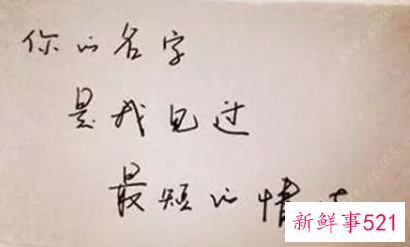 你的名字
是我见过
最短的情
新鲜事521